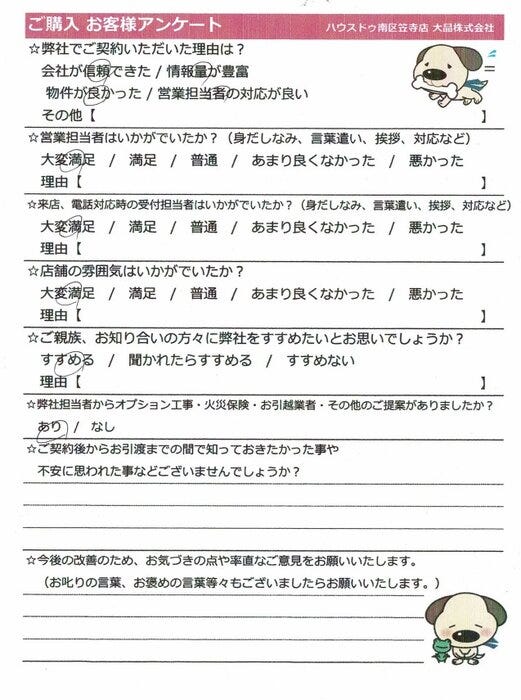 ご購入 お客様アンケート ハウスドゥ南区笠寺店 大品株式会社
☆弊社でご契約いただいた理由は？
会社が信頼できた / 情報量が豊富
物件が良かった / 営業担当者の対応が良い
その他【 】
☆営業担当者はいかがでいたか？（身だしなみ、言葉遣い、挨拶、対応など）
大変満足 / 満足 / 普通 / あまり良くなかった / 悪かった
理由【 】
☆来店、電話対応時の受付担当者はいかがでいたか？（身だしなみ、言葉遣い、挨拶、対応など）
大変満足 / 満足 / 普通 / あまり良くなかった / 悪かった
理由【 】
☆店舗の雰囲気はいかがでいたか？
大変満足 / 満足 / 普通 / あまり良くなかった / 悪かった
理由【 】
☆ご親族、お知り合いの方々に弊社をすすめたいとお思いでしょうか？
すすめる / 聞かれたらすすめる / すすめない
理由【 】
☆弊社担当者からオプション工事・火災保険・お引越業者・その他のご提案がありましたか？
あり / なし
☆ご契約後からお引渡までの間で知っておきたかった事や
不安に思われた事などございませんでしょうか？
☆今後の改善のため、お気づきの点や率直なご意見をお願いいたします。
（お叱りの言葉、お褒めの言葉等々もございましたらお願いいたします。）